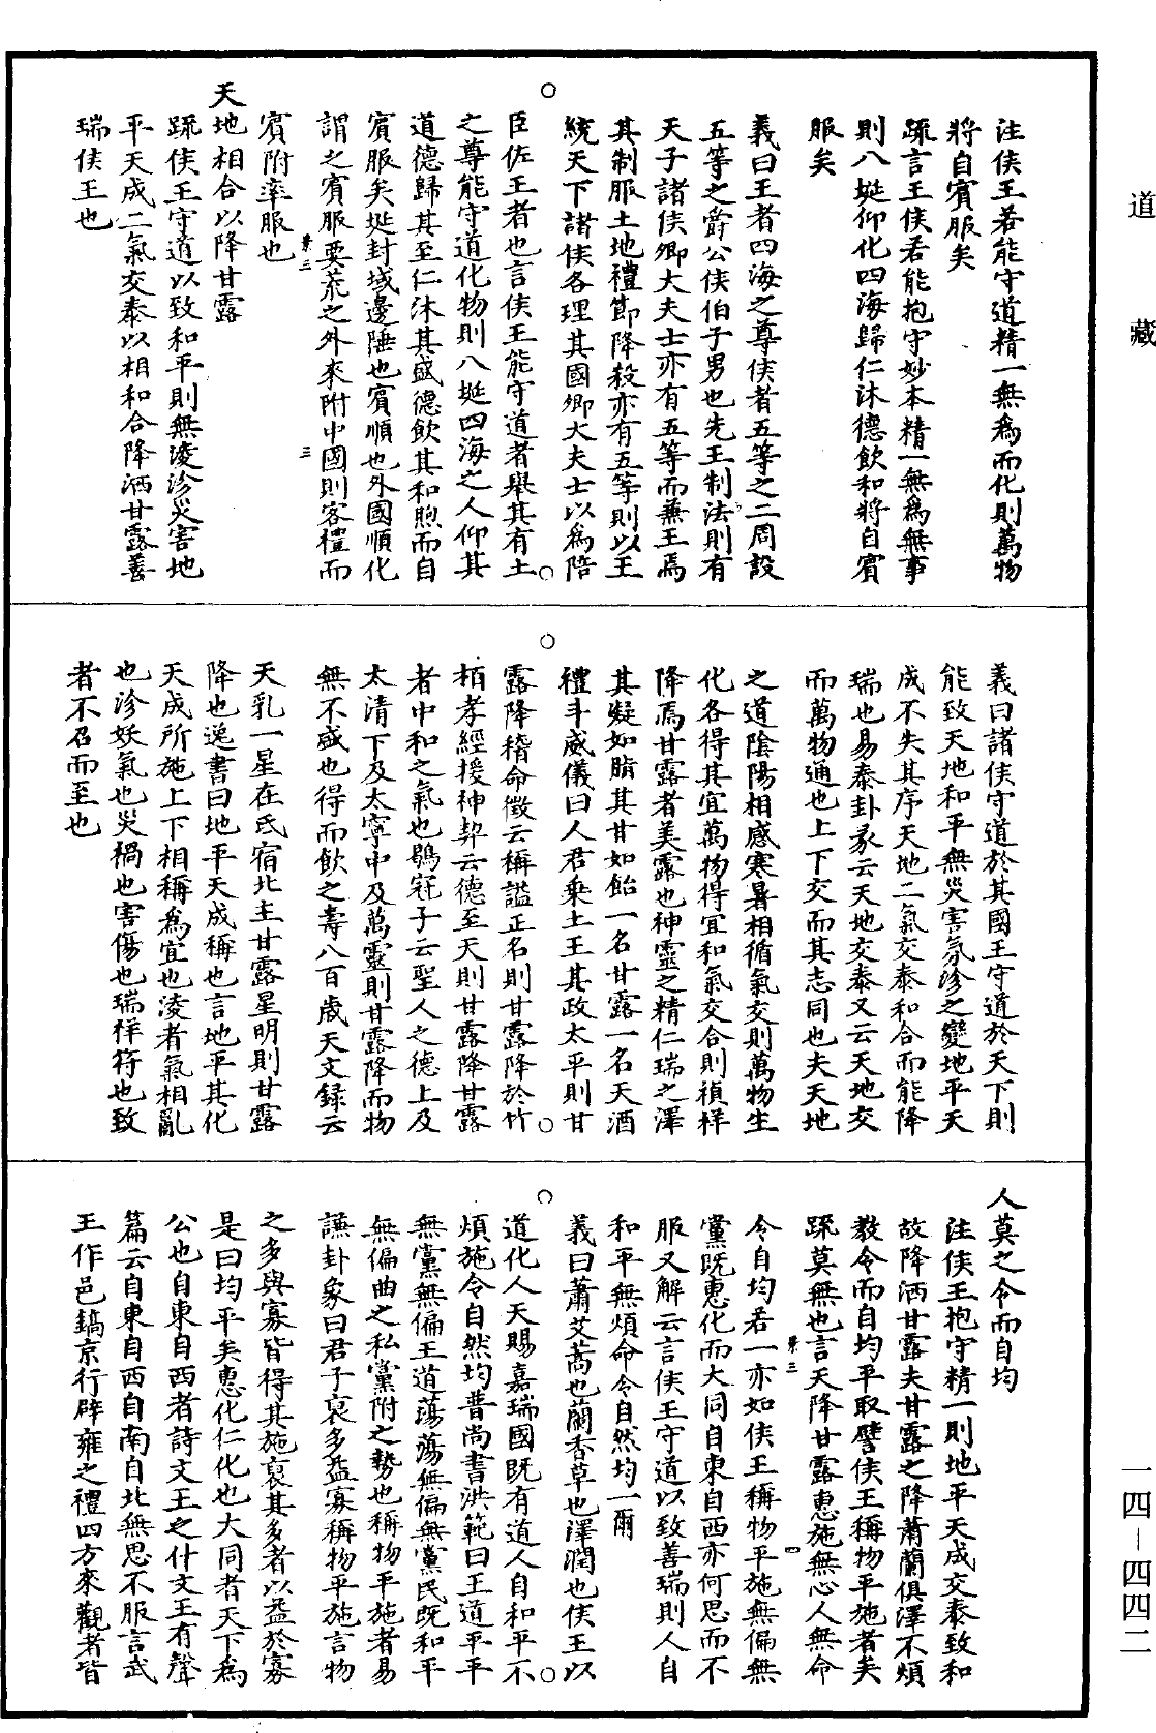 道藏
注侯王若能守道精一無為而化則萬物
將自賓服矣
疏言王侯若能抱守妙本精一無為無事
則八埏仰化四海歸仁沐德飲和將自賓
服矣
義曰王者四海之尊侯者五等之二周設
五等之爵公侯伯子男也先王制法則有
天子諸侯卿大夫士亦有五等而兼王焉
其制服土地禮節降殺亦有五等則以王
統天下諸侯各理其國卿大夫士以為陪
臣佐王者也言侯王能守道者舉其有土
之尊能守道化物則八埏四海之人仰其
道德歸其至仁沐其盛德飲其和煦而自
賓服矣埏封域邊陲也賓順也外國順化
謂之賓服要荒之外來附中國則客禮而
三
賓附率服也
天地相合以降甘露
疏侯王守道以致和平則無淩沴災害地
平天成二氣交泰以相和合降洒甘露善
瑞侯王也
義曰諸侯守道於其國王守道於天下則
能致天地和平無災害氛沴之變地平天
成不失其序天地二氣交泰和合而能降
瑞也易泰卦彖云天地交泰又云天地交
而萬物通也上下交而其志同也夫天地
之道陰陽相感寒暑相循氣交則萬物生
化各得其宜萬物得宜和氣交合則禎祥
降焉甘露者美露也神靈之精仁瑞之澤
其凝如脂其甘如飴一名甘露一名天酒
禮斗威儀曰人君乘土王其政太平則甘
露降稽命徵云稱謚正名則甘露降於竹
栢孝經援神契云德至天則甘露降甘露
者中和之氣也鶡冠子云聖人之德上及
太清下及太寧中及萬靈則甘露降而物
無不盛也得而飲之壽八百歲天文録云
天乳一星在氐宿北主甘露星明則甘露
降也逸書曰地平天成稱也言地平其化
天成所施上下相稱為宜也淩者氣相亂
也沴妖氣也災禍也害傷也瑞祥符也致
者不召而至也
人莫之令而自均
注侯王抱守精一則地平天成交泰致和
故降洒甘露夫甘露之降蕭蘭俱澤不煩
教令而自均平取譬侯王稱物平施者矣
疏莫無也言天降甘露惠施無心人無命
四
令自均若一亦如侯王稱物平施無偏無
黨既惠化而大同自東自西亦何思而不
服又解云言侯王守道以致善瑞則人自
和平無煩命令自然均一爾
義曰蕭艾蒿也蘭香草也澤潤也侯王以
道化人天賜嘉瑞國既有道人自和平不
煩施令自然均普尚書洪範曰王道平平
無黨無偏王道蕩蕩無偏無黨民既和平
無偏曲之私黨附之勢也稱物平施者易
謙卦象曰君子裒多益寡稱物平施言物
之多與寡皆得其施裒其多者以益於寡
是曰均平矣惠化仁化也大同者天下為
公也自東自西者詩文王之什文王有聲
篇云自東自西自南自北無思不服言武
王作邑鎬京行辟雍之禮四方來觀者皆
一四—四四二